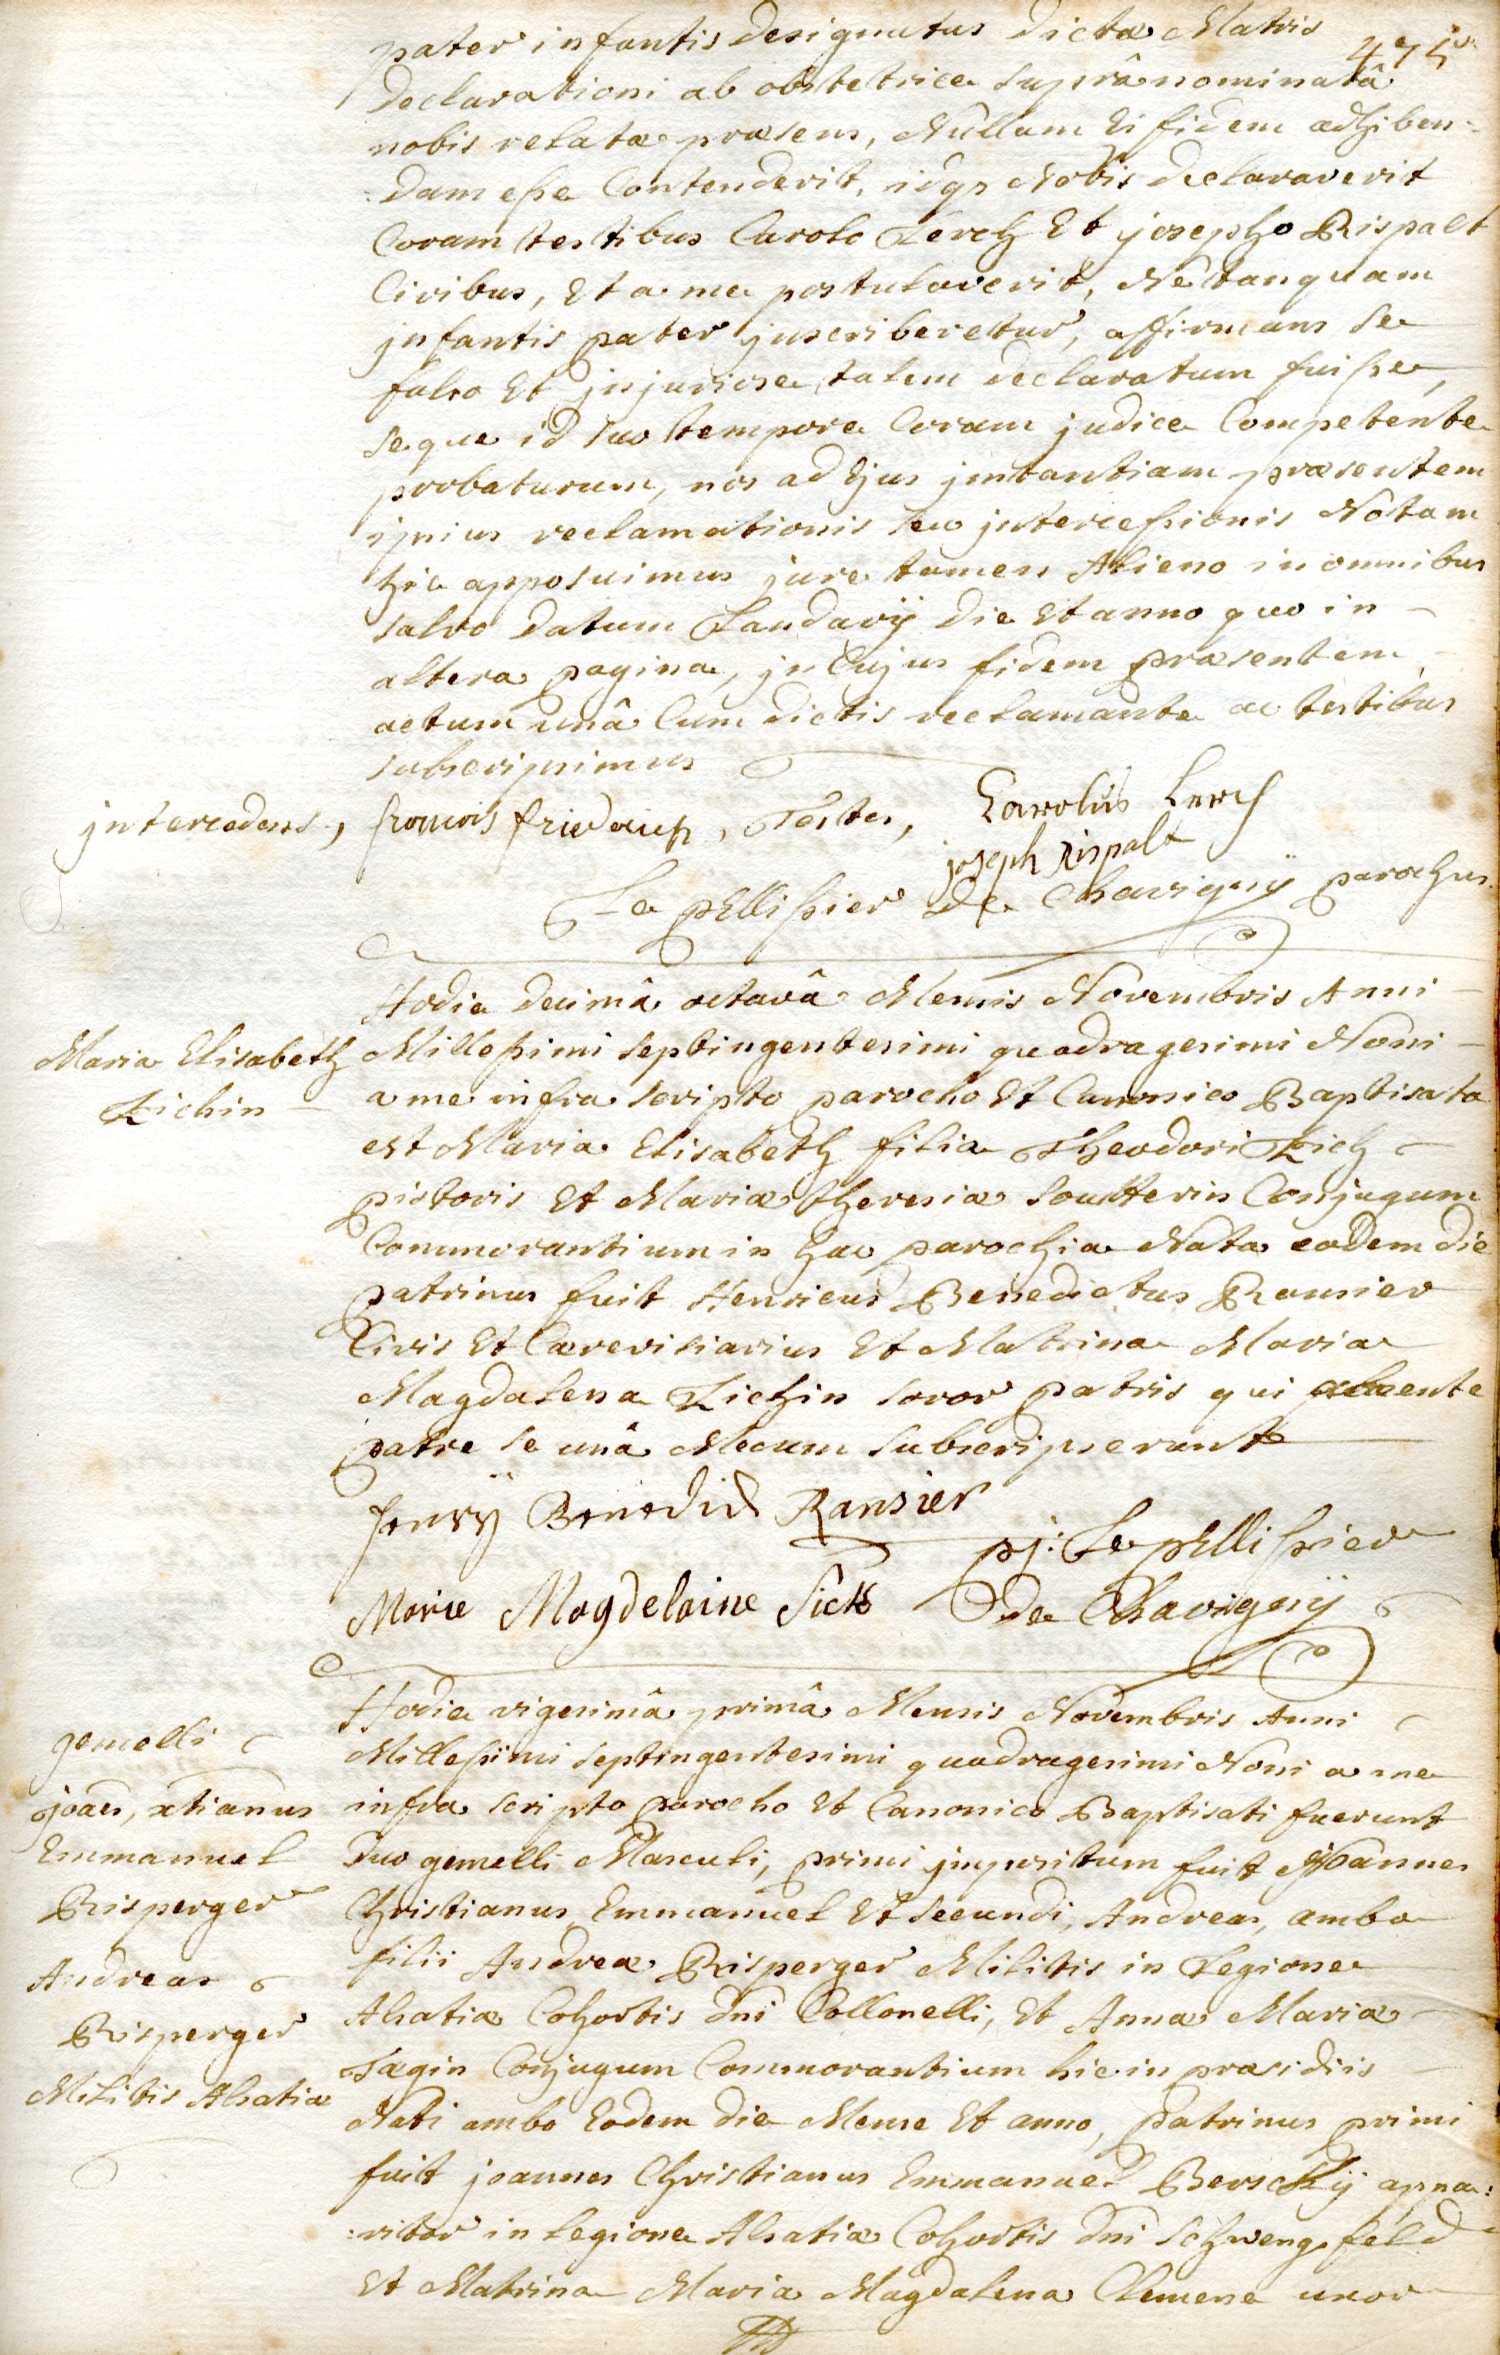 475
pater infantis designatus dictæ Matris
declarationi ab obstetrice suprânominatâ
nobis relatæ præsens, Nullam Ei fidem adhiben=
=dam esse Contenderit, idqe Nobis declaraverit
Coram testibus Carolo Lerch Et josepho Rispalt
Civibus, Et a me postulaverit, Ne tanquam
jnfantis pater jnscriberetur, affirmans se
falso Et jnjuriose talem declaratum fuisse,
seque id suo tempore Coram judice Competente
probaturum, nos ad Ejus jnstantiam præsentem
ipsius reclamationis seu jntercessionis Notam
hic apposuimus jure tamen Alieno in omnibus
salvo datum Landavÿ die Et anno quo in
altera pagina, jn Cujus fidem præsentem
actum unâ Cum dictis reclamante ac testibus
subscripsimus
jntercedens, francois friederich, Testes, Carolus Lerch
joseph Rispalt
Le pEllissier de Chavignÿ parochus
Hodie decimâ octavâ Mensis Novembris Anni
Maria Elisabeth
Zichin
Millesimi septingentesimi quadragesimi Noni
a me infra scripto parocho Et Canonico Baptisata
est Maria Elisabeth filia Theodori Zich
pistoris Et Mariæ theresiæ soulterin Conjugum
Commorantium in hac parochia Nata eodem die
patrinus fuit Henricus Benedictus Ransier
Civis Et Cærevisiarius Et Matrina Maria
Magdalena Zichin soror patris qui absente
patre se unâ Mecum subscripserunt
Henrÿ Benedict Ransier
pj: Le pEllissier
Marie Magdelaine Sichs
de Chavignÿ
Hodie vigesimâ primâ Mensis Novembris Anni
gemelli
joaes, xtianus
Emmanuel
Risperger
Andreas
Risperger
Militis Alsatiæ
Millesimi septingentesimi quadragesimi Noni a me
infra scripto parocho Et Canonico Baptisati fuerunt
Duo gemelli Masculi, primi jmpositum fuit joannes
Christianus Emmanuel Et secundi, Andreas, ambo
filii Andreæ Risperger Militis in Legione
Alsatiæ Cohortis dni Collonelli, Et Annæ Mariæ
Tægin Conjugum Commorantium hic in præsidiis
Nati ambo Eodem die Mense Et anno, patrinus primi
fuit joannes Christianus Emmanuel Berschÿ appa=
=ritor in Legione Alsatiæ Cohortis dni schwengsfeld
Et Matrina Maria Magdalena Clemens uxor